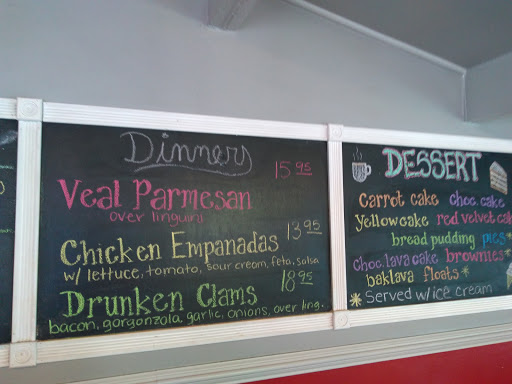 Dinners
15.95
Veal Parmesan
over linguini
13.95
Chicken Empanadas
w/ lettuce, tomato, sour cream, feta, salsa
18.95
Drunken Clams
bacon, gorgonzola, garlic, onions, over ling.
DESSERT
Carrot cake choc. cake
Yellow cake red velvet cake
bread pudding pies*
choc. lava cake brownies*
baklava floats*
*Served w/ ice cream